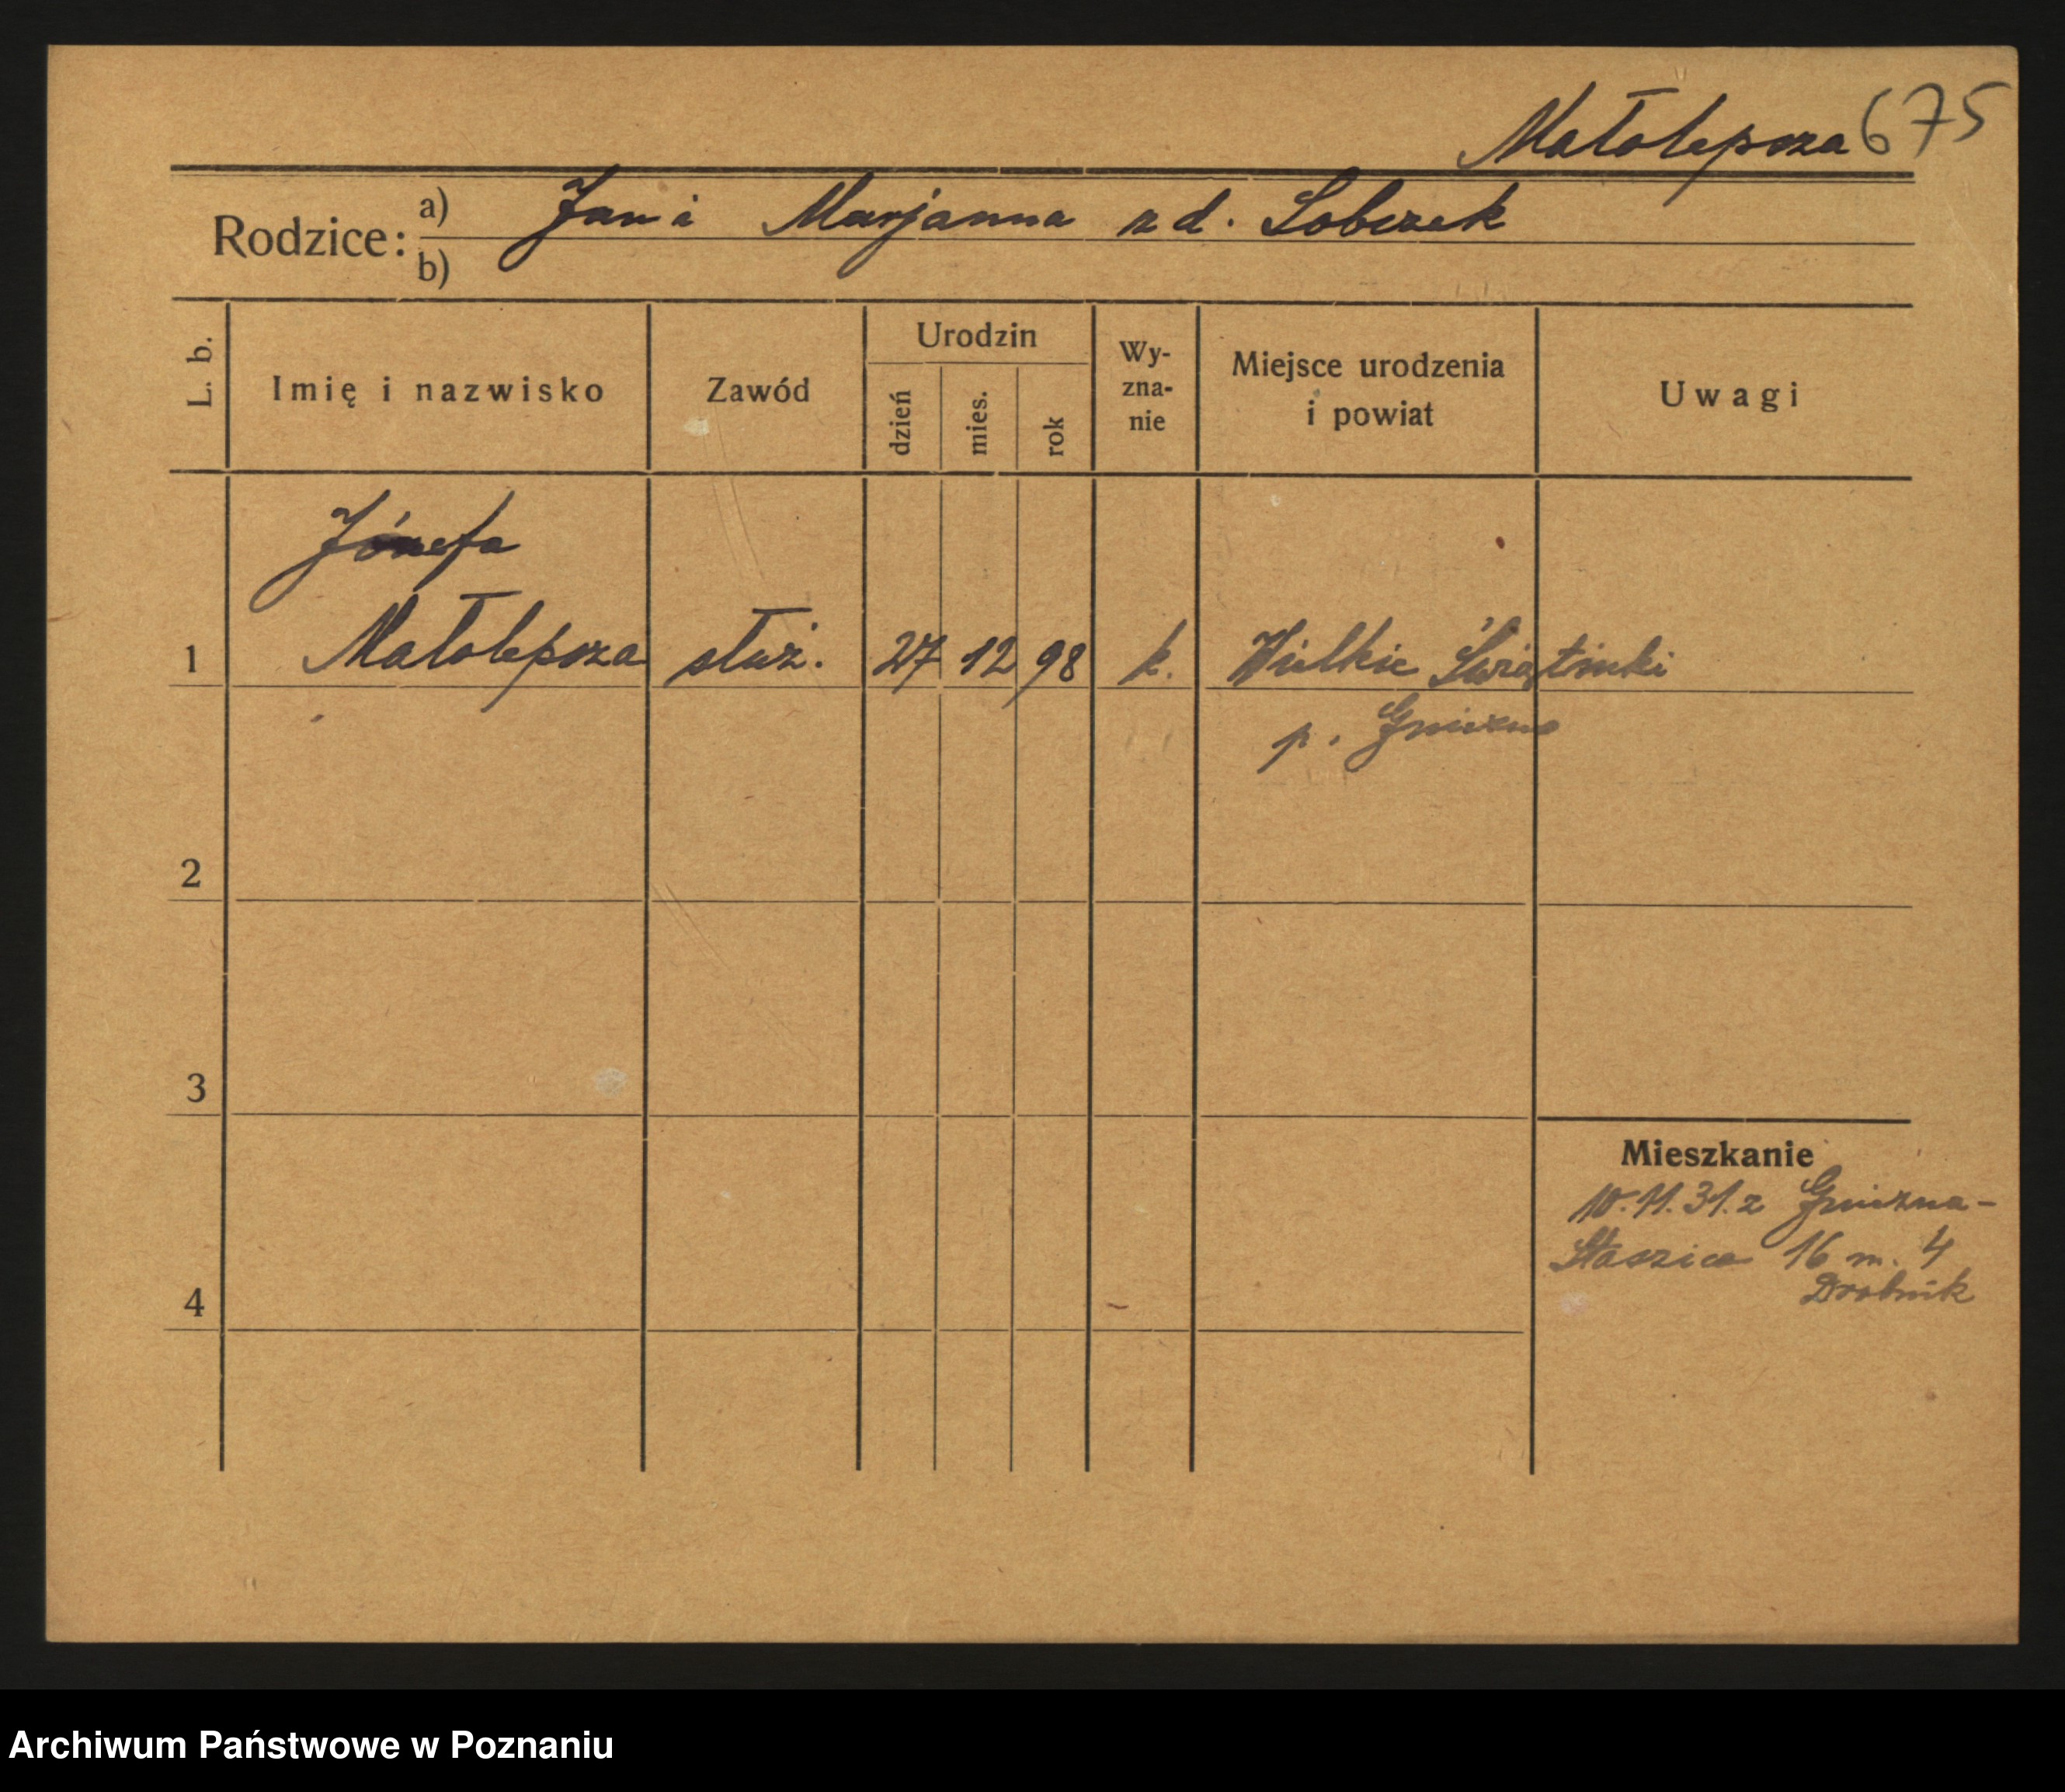 Małolepsza 675
Rodzice: a) Jan i Marjanna z d. Sobczak
b)
L. b.
Imię i nazwisko
Zawód
Urodzin
dzień
mies.
rok
Wy-
zna-
nie
Miejsce urodzenia
i powiat
Uwagi
Józefa
1 Małolepsza służ. 27 12 98 k. Wielkie Świątniki
p. Gniezno
2
3
Mieszkanie
10.11.31. z Gniezna-
Staszica 16 m. 4
4 Drobnik
Archiwum Państwowe w Poznaniu